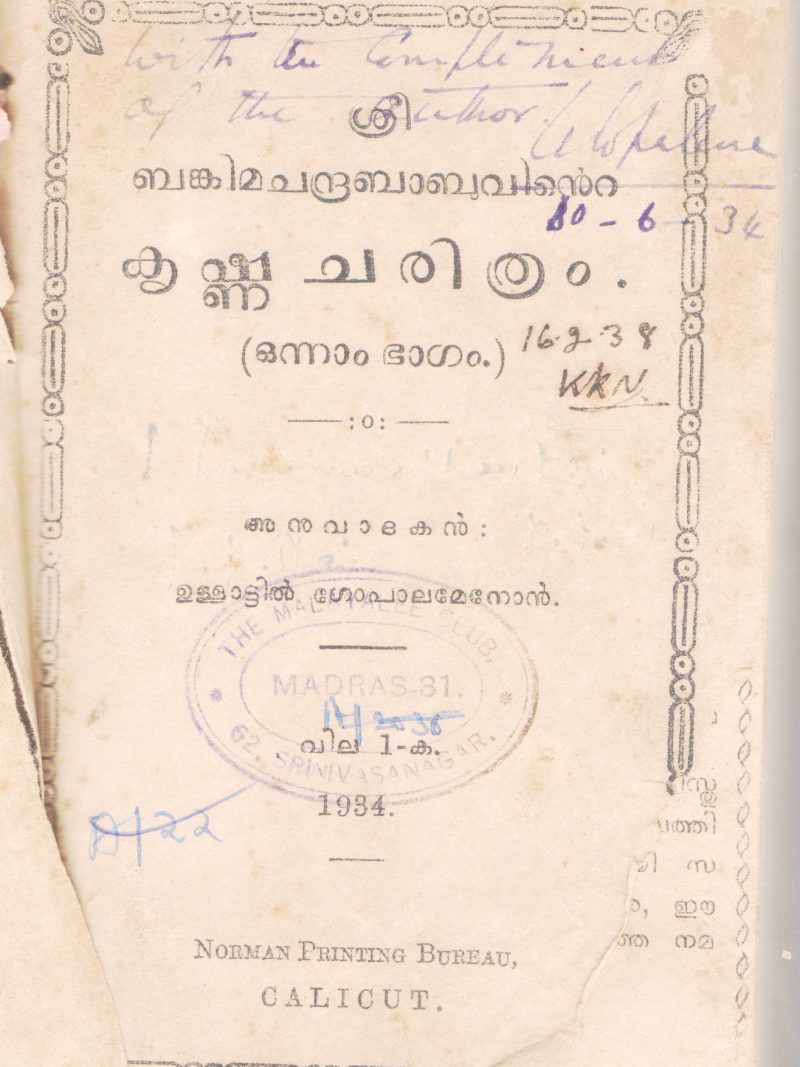 with the Compliments
of the author.
ശ്രീ
ബങ്കിമചന്ദ്രബാബുവിൻെറ
10-6-34
കൃഷ്ണചരിത്രം.
(ഒന്നാം ഭാഗം.)
16.2.38
KKN.
—:o:—
അനുവാദകൻ:
ഉള്ളാട്ടിൽ ഗോപാലമേനോൻ.
THE MALAYALEE CLUB,
MADRAS-31.
62, SRINIVASANAGAR.
വില 1-ക.
1934.
D/22
പത്തി
സ
ഈ
നമ
NORMAN PRINTING BUREAU,
CALICUT.